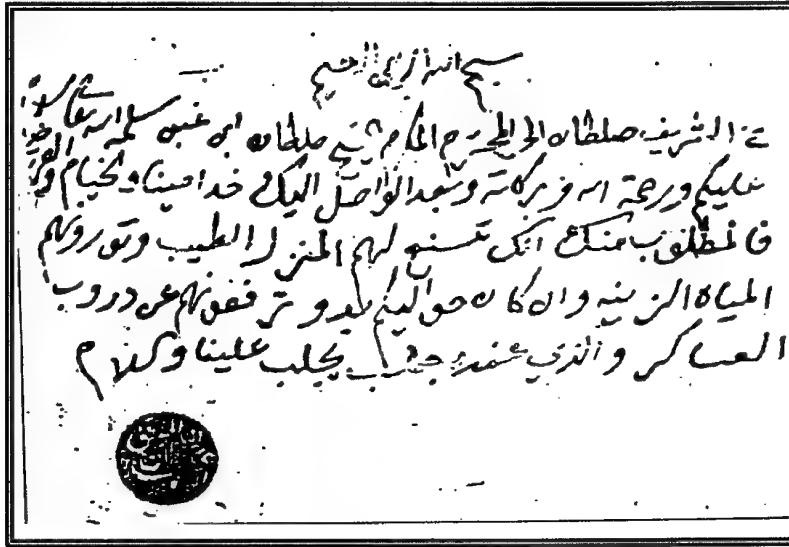 بسم الله الرحمن الرحيم
من الشريف سلطان الى المحترم المكرم الشيخ سلطان ابن غبن سلمه الله تعالى
عليكم ورحمة الله وبركاته وبعد الواصل اليك خدامينا والخيام
فالمطلوب منك انك تسنع لهم المنزل الطيب وتوردهم
المياه الزينه وان كان حواليكم بدو ترفعونهم عن دروب
العساكر والذي عنده جلب يجلب علينا وسلام